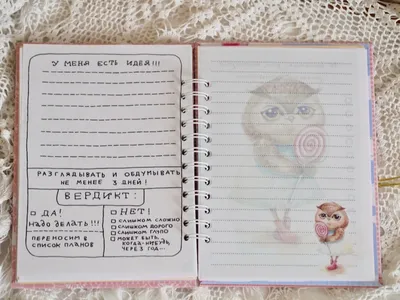 У МЕНЯ ЕСТЬ ИДЕЯ!!!
РАЗГЛЯДЫВАТЬ И ОБДУМЫВАТЬ
НЕ МЕНЕЕ 3 ДНЕЙ!
ВЕРДИКТ:
ДА!
НАДО ДЕЛАТЬ!!!
ПЕРЕНОСИМ В
СПИСОК ПЛАНОВ
НЕТ!
СЛИШКОМ СЛОЖНО
СЛИШКОМ ДОРОГО
СЛИШКОМ ГЛУПО
МОЖЕТ БЫТЬ,
КОГДА-НИБУДЬ,
ЧЕРЕЗ ГОД...